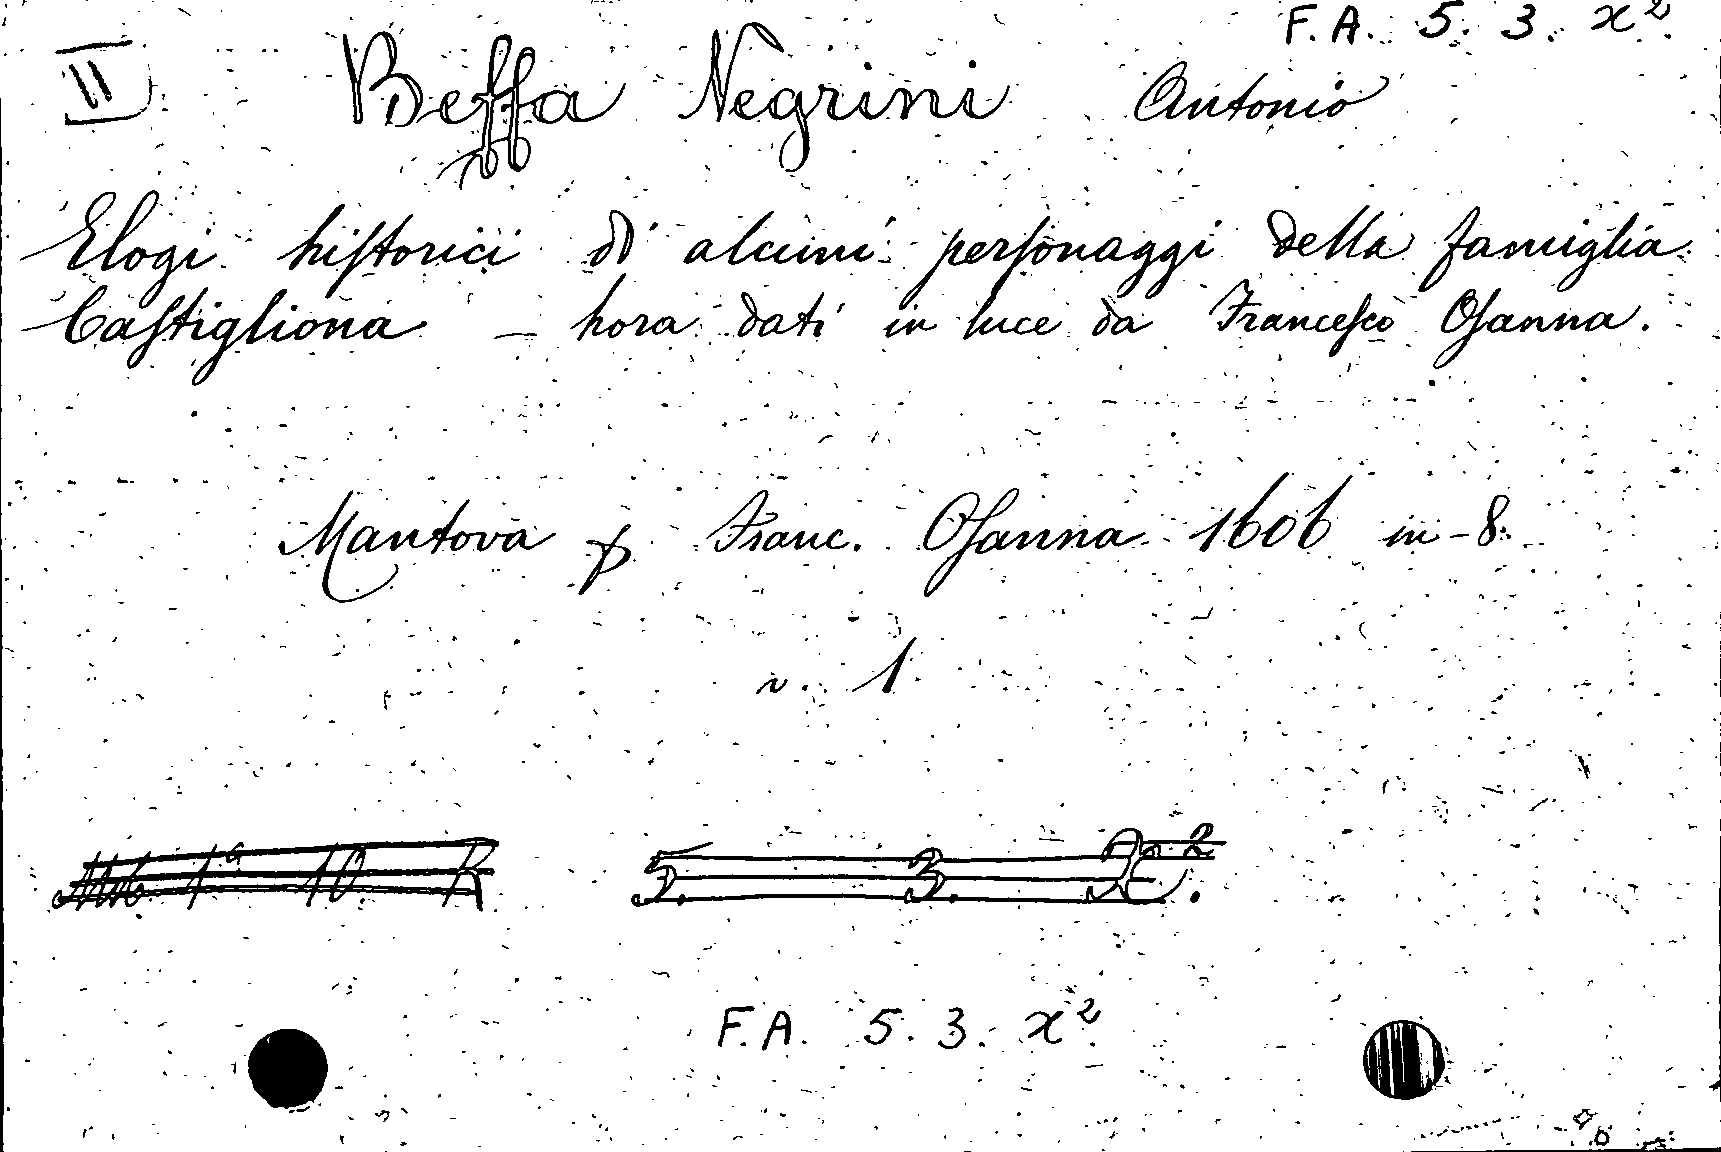 F. A. 5. 3. x².
II Beffa Negrini Antonio
Elogi hiſtorici di alcuni perſonaggi della famiglia
Caſtigliona – hora dati in luce da Franceſco Oſanna.
Mantova p Franc. Oſanna 1606 in-8.
v. 1
1ª 10 R 5. 3. X².
F. A. 5. 3. x².